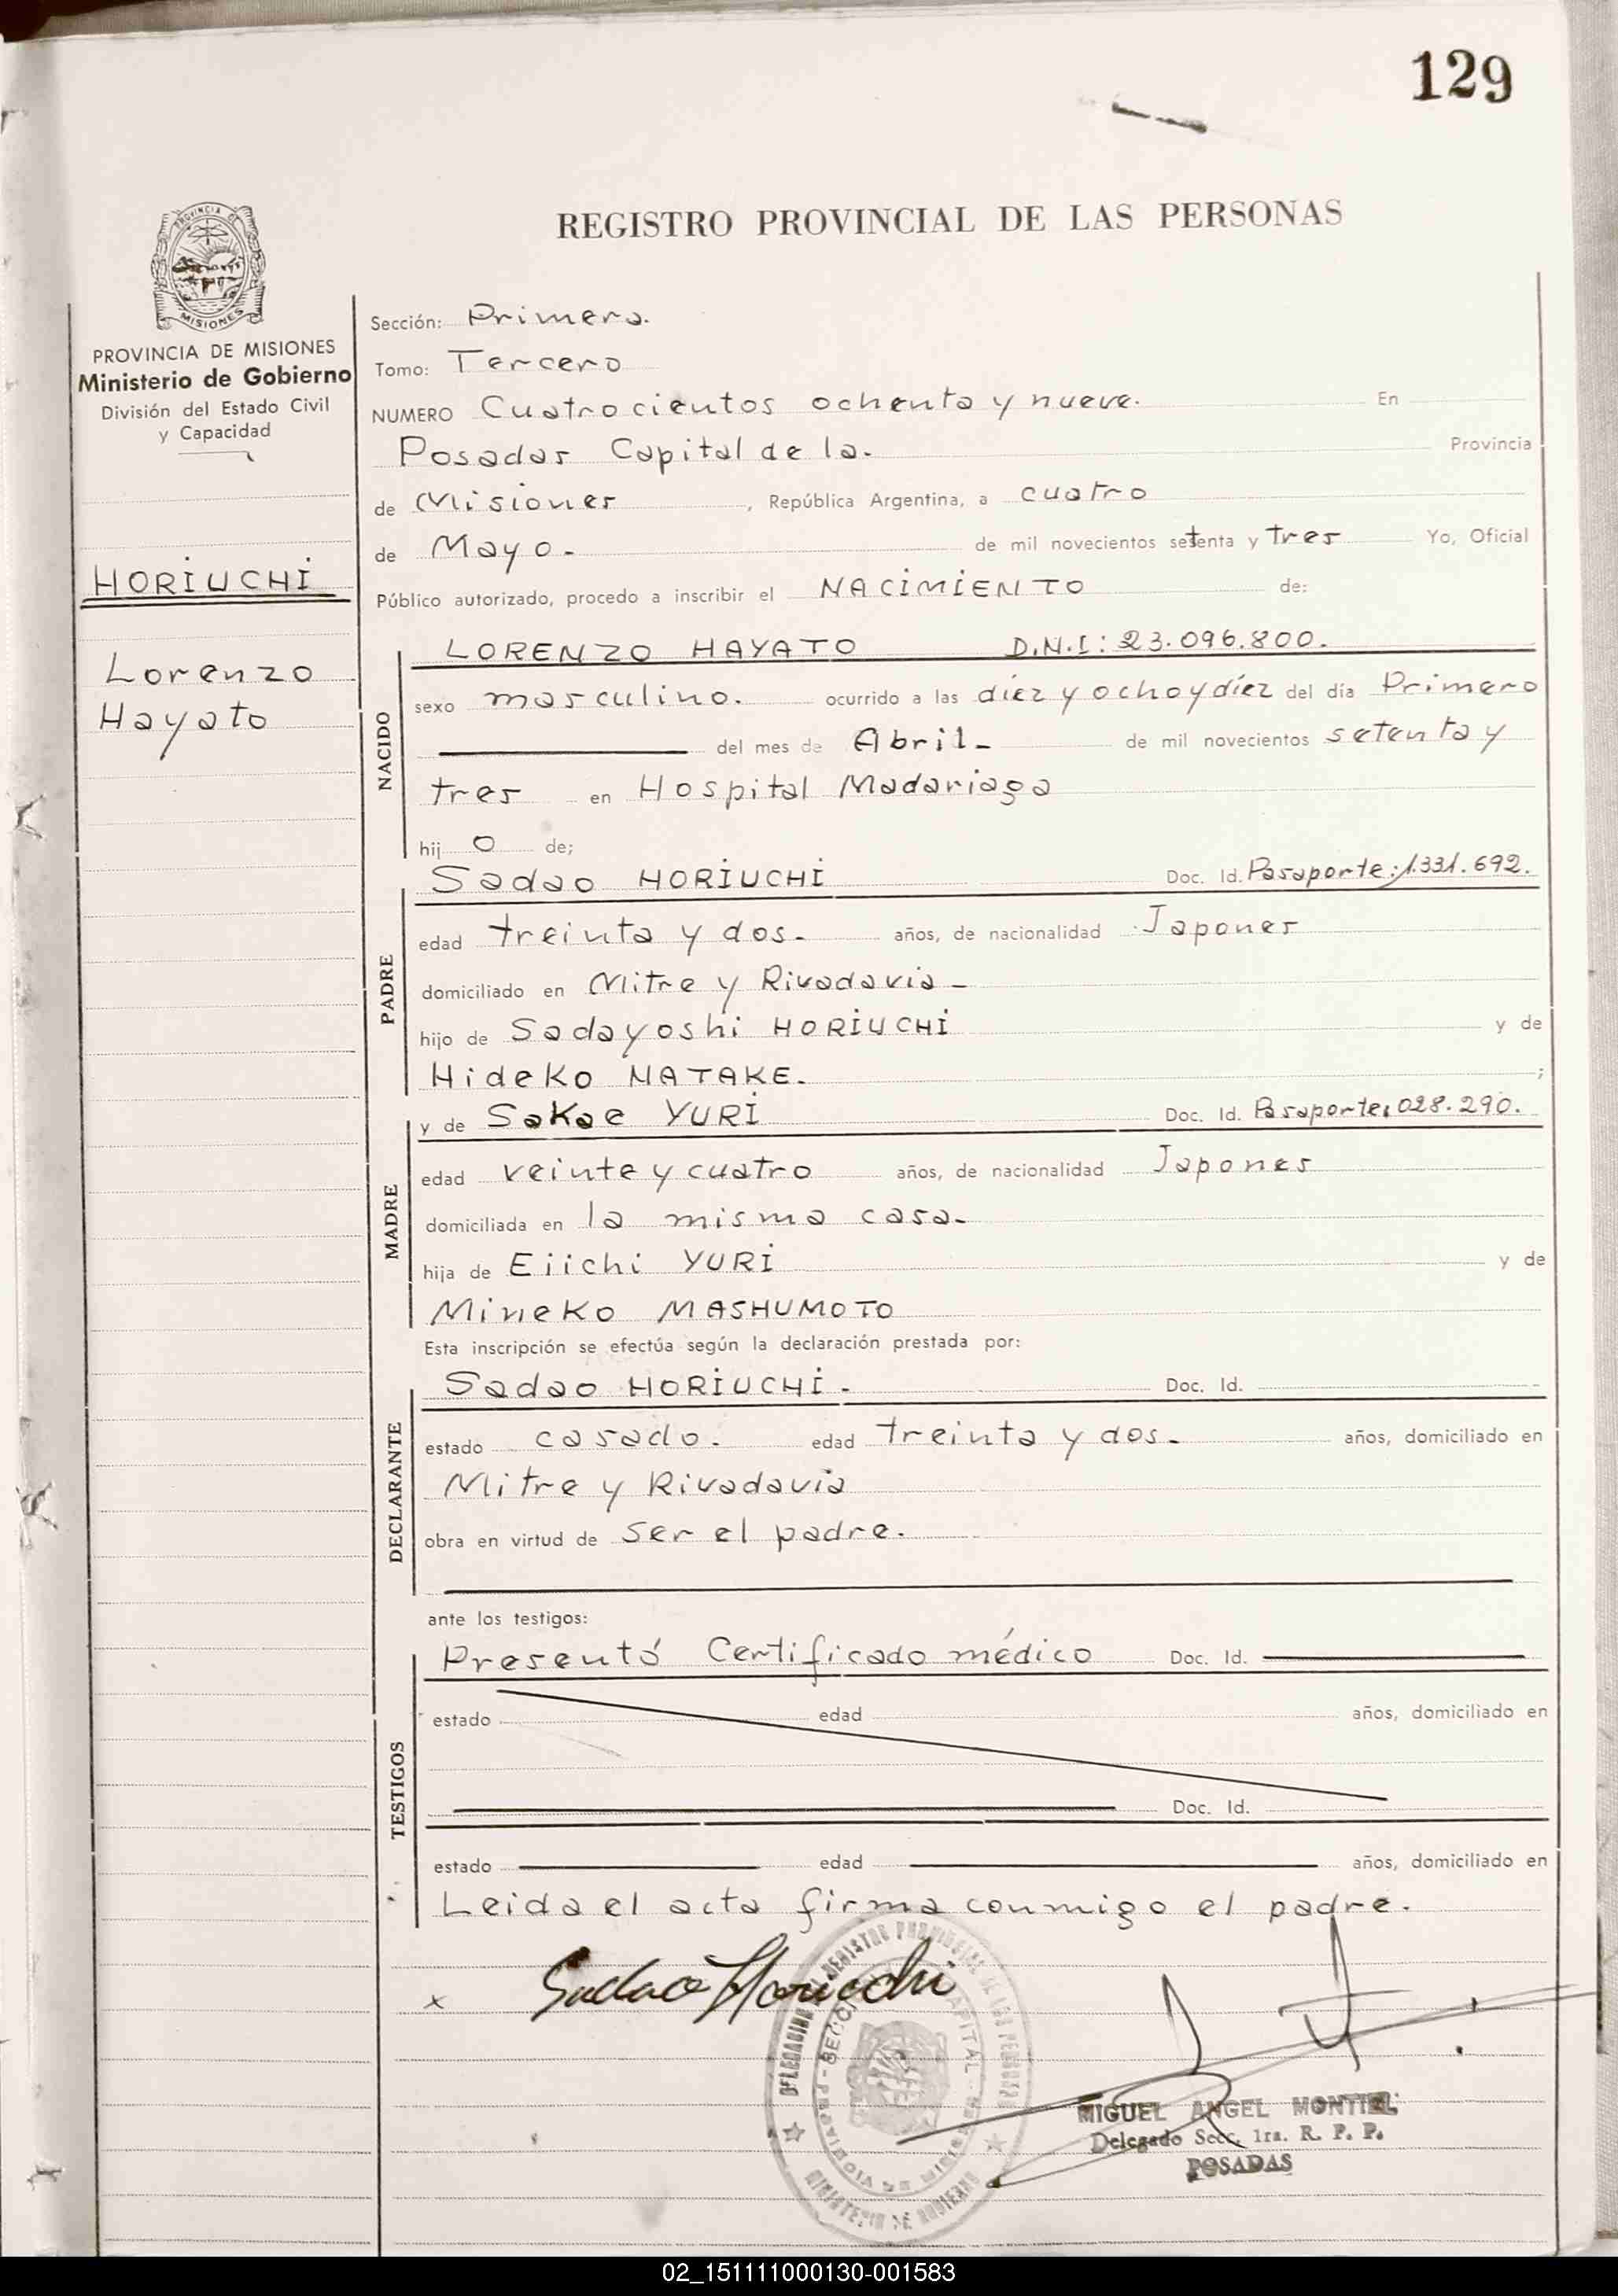 129
REGISTRO PROVINCIAL DE LAS PERSONAS
PROVINCIA DE MISIONES
PROVINCIA DE MISIONES
Ministerio de Gobierno
División del Estado Civil
y Capacidad
HORIUCHI
Lorenzo
Hayato
Sección: Primera.
Tomo: Tercero
NUMERO Cuatrocientos ochenta y nueve. En
Posadas Capital de la. Provincia
de Misiones, República Argentina, a cuatro
de Mayo. de mil novecientos setenta y tres Yo, Oficial
Público autorizado, procedo a inscribir el NACIMIENTO de:
NACIDO
LORENZO HAYATO D.N.I: 23.096.800.
sexo masculino. ocurrido a las diez y ocho y diez del día Primero
del mes de Abril- de mil novecientos setenta y
tres en Hospital Madariaga
hijo de;
PADRE
Sadao HORIUCHI Doc. Id. Pasaporte: 1.331.692.
edad treinta y dos. años, de nacionalidad Japones
domiciliado en Mitre y Rivadavia-
hijo de Sadayoshi HORIUCHI y de
Hideko NATAKE. ;
MADRE
y de Sakae YURI Doc. Id. Pasaporte: 028.290.
edad veinte y cuatro años, de nacionalidad Japones
domiciliada en la misma casa-
hija de Eiichi YURI y de
Mineko MASHUMOTO
Esta inscripción se efectúa según la declaración prestada por:
DECLARANTE
Sadao HORIUCHI. Doc. Id.
estado casado. edad treinta y dos. años, domiciliado en
Mitre y Rivadavia
obra en virtud de ser el padre.
ante los testigos:
TESTIGOS
Presentó Certificado médico Doc. Id.
estado edad años, domiciliado en
Doc. Id.
estado edad años, domiciliado en
Leida el acta firma conmigo el padre.
x Sadao Horiuchi
MIGUEL ANGEL MONTIEL
Delegado Secc. 1ra. R. P. P.
POSADAS
02_151111000130-001583